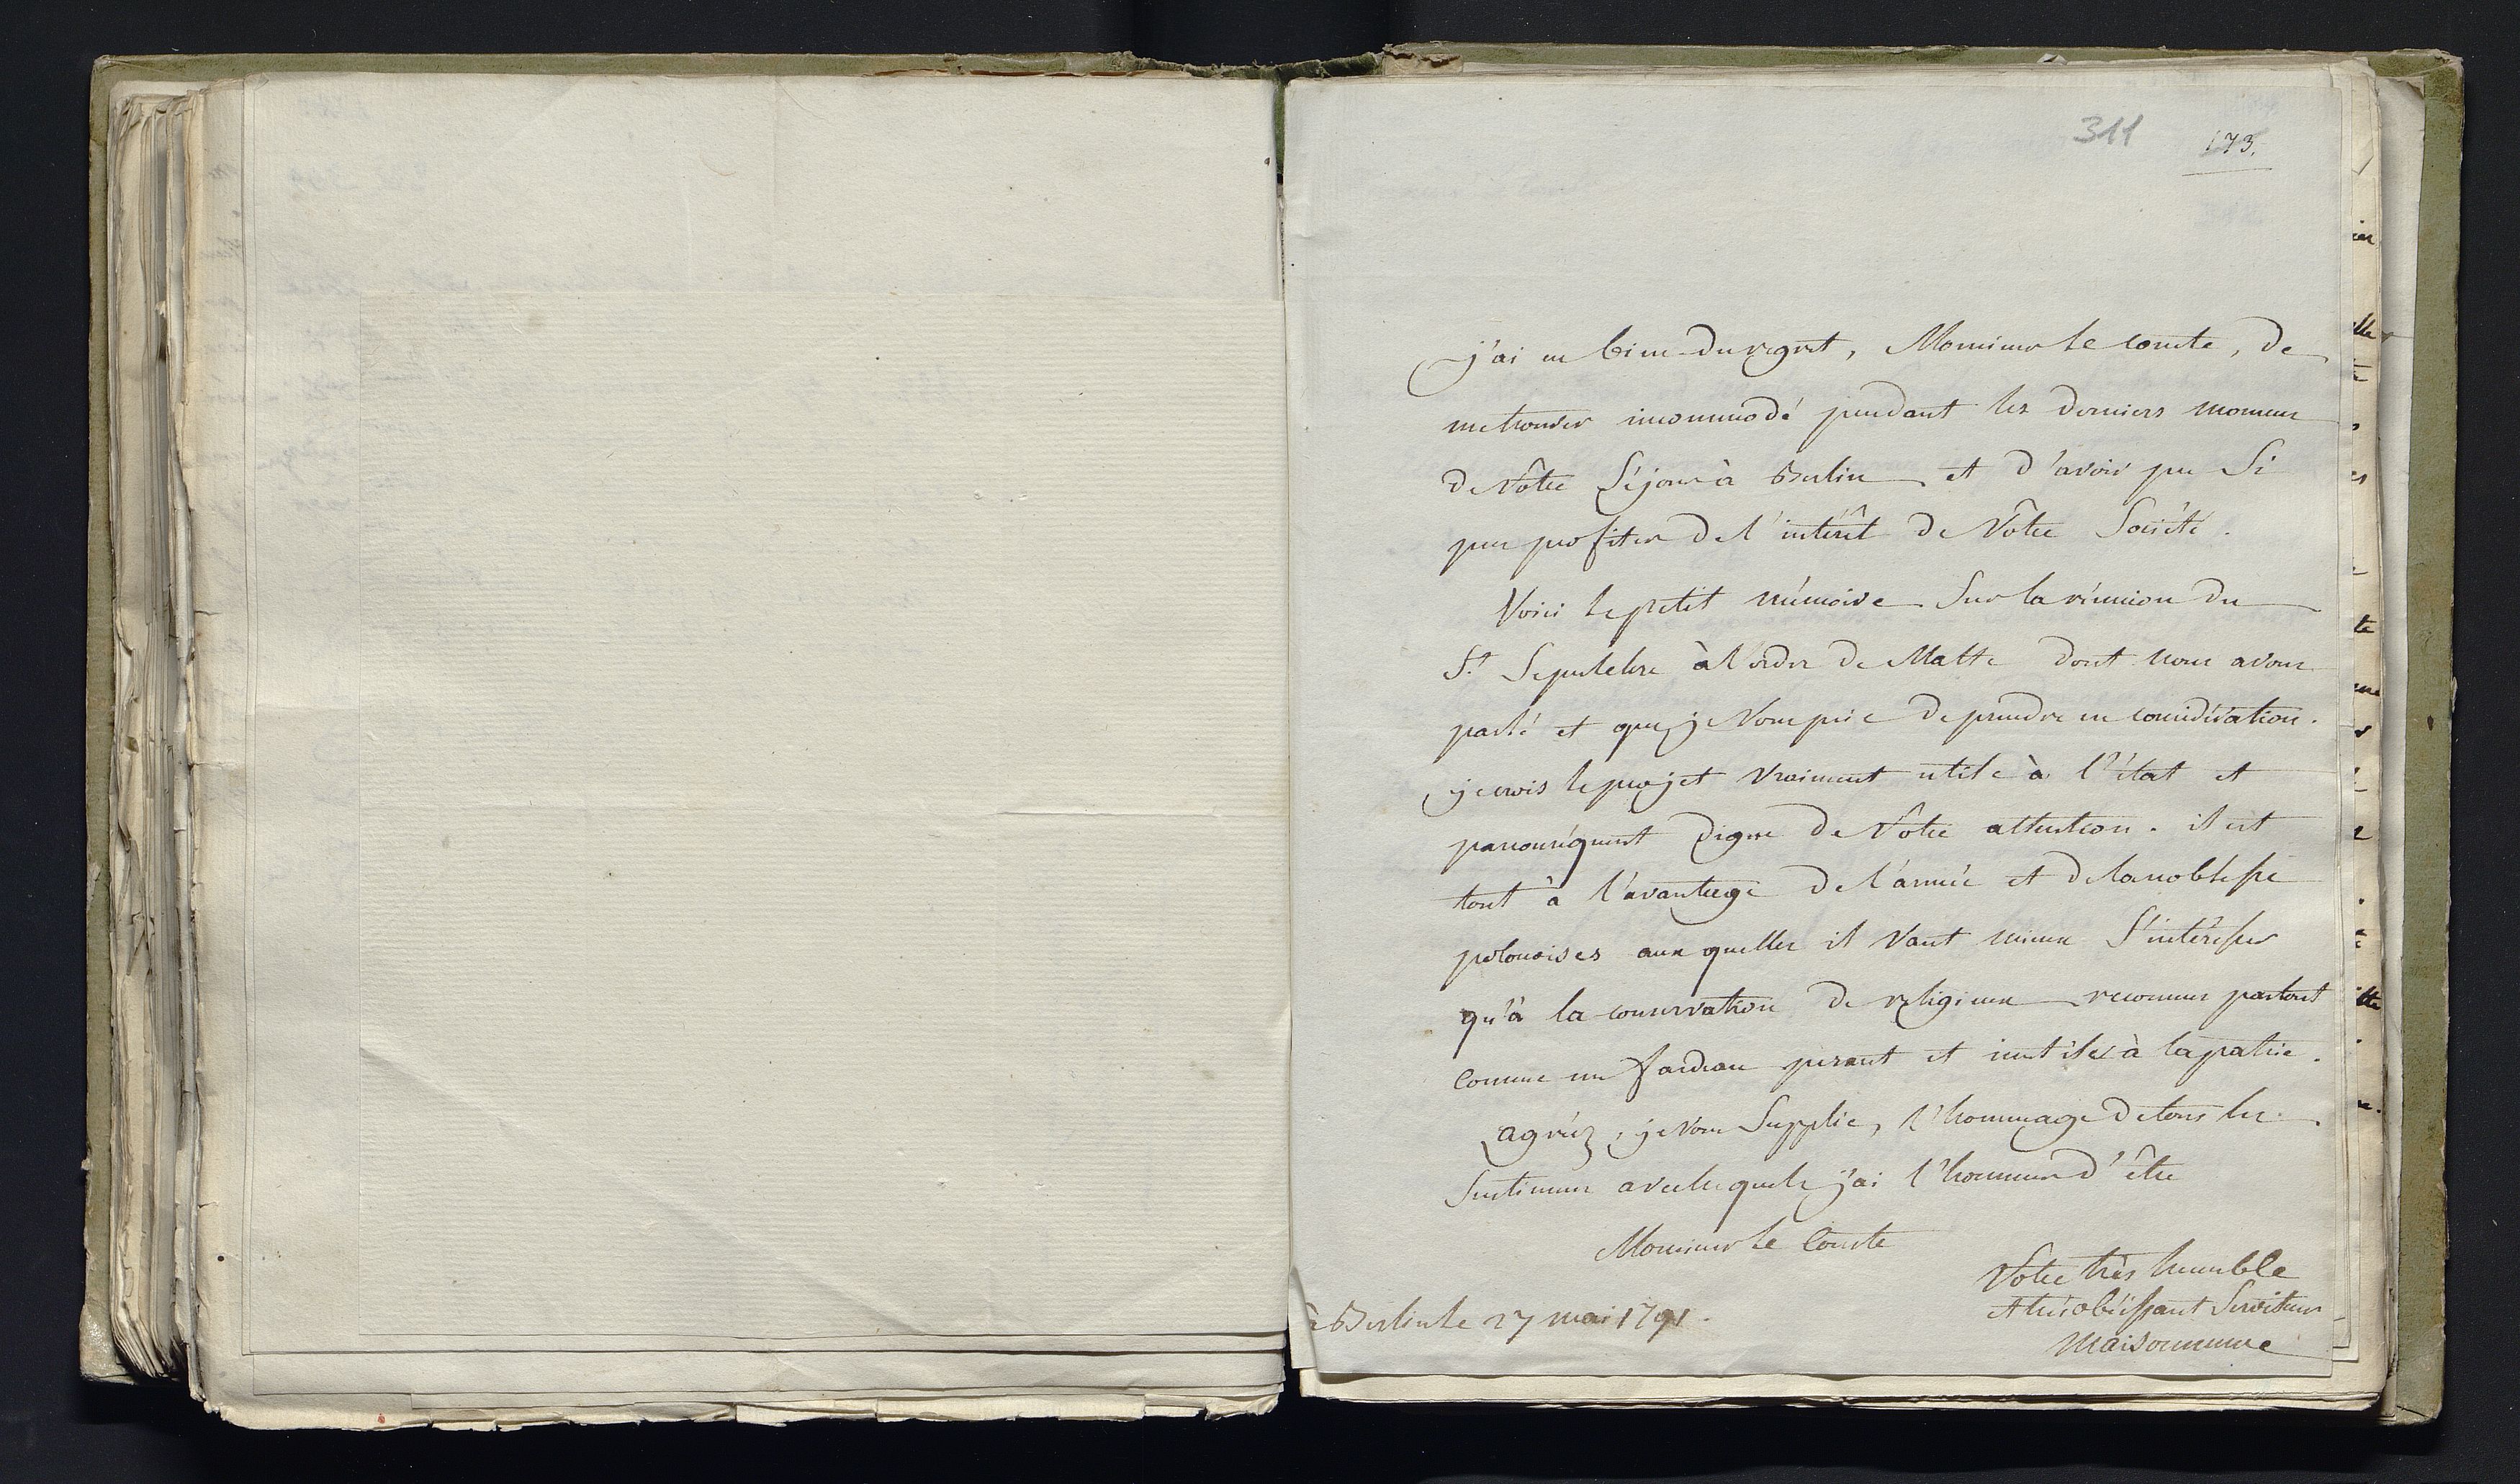 311
173.
j'ai eu bien du regret, Monsieur le comte, de
me trouver incommodé pendant les derniers momens
de Vôtre Séjour à Berlin et d'avoir pu Si
peu profiter de l'intérêt de Vôtre Société.
Voici le petit mémoire Sur la réunion du
St. Sepulchre à l'ordre de Malthe dont nous avons
parlé et que je Vous prie de prendre en considération.
je crois le projet Vraiment utile à l'état et
par conséquent digne de Vôtre attention. il est
tout à l'avantage de l'armée et de la noblesse
polonoises aux quelles il Vaut mieux S'intéresser
qu'à la conservation de religieux reconnus partout
comme un fardeau pesant et inutile à la patrie.
agréez, je Vous Supplie, l'hommage de tous les
Sentimens avec lesquels j'ai l'honneur d'être
Monsieur le Comte
Votre très humble
et très obéissant Serviteur
Maisonneuve
à Berlin le 27 mai 1791.